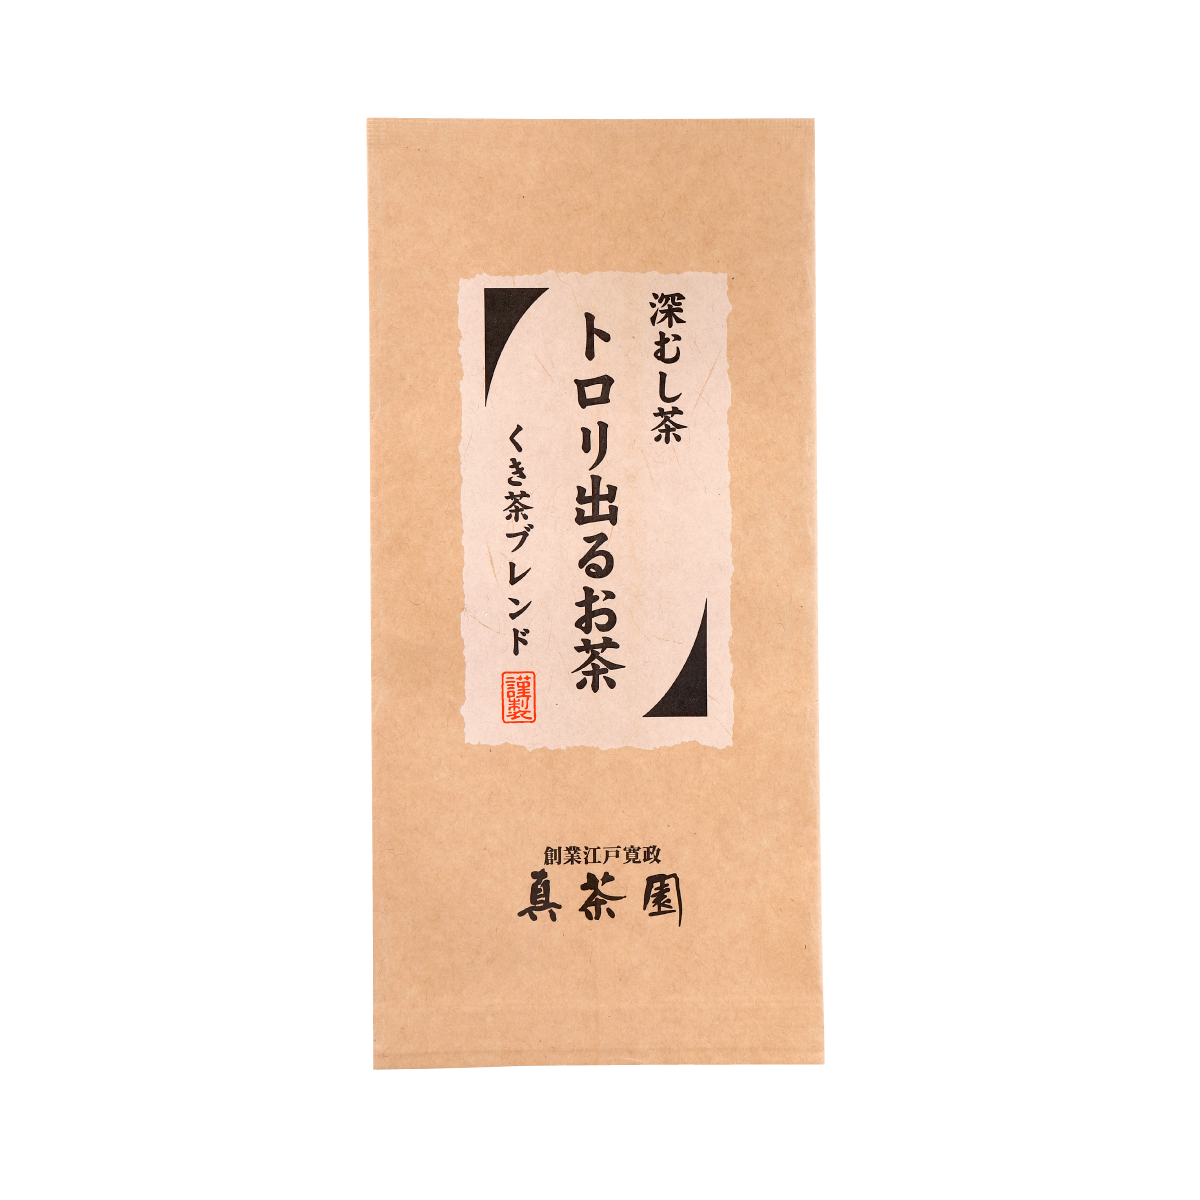 深むし茶
トロリ出るお茶
くき茶ブレンド
謹製
創業江戸寛政
真茶園